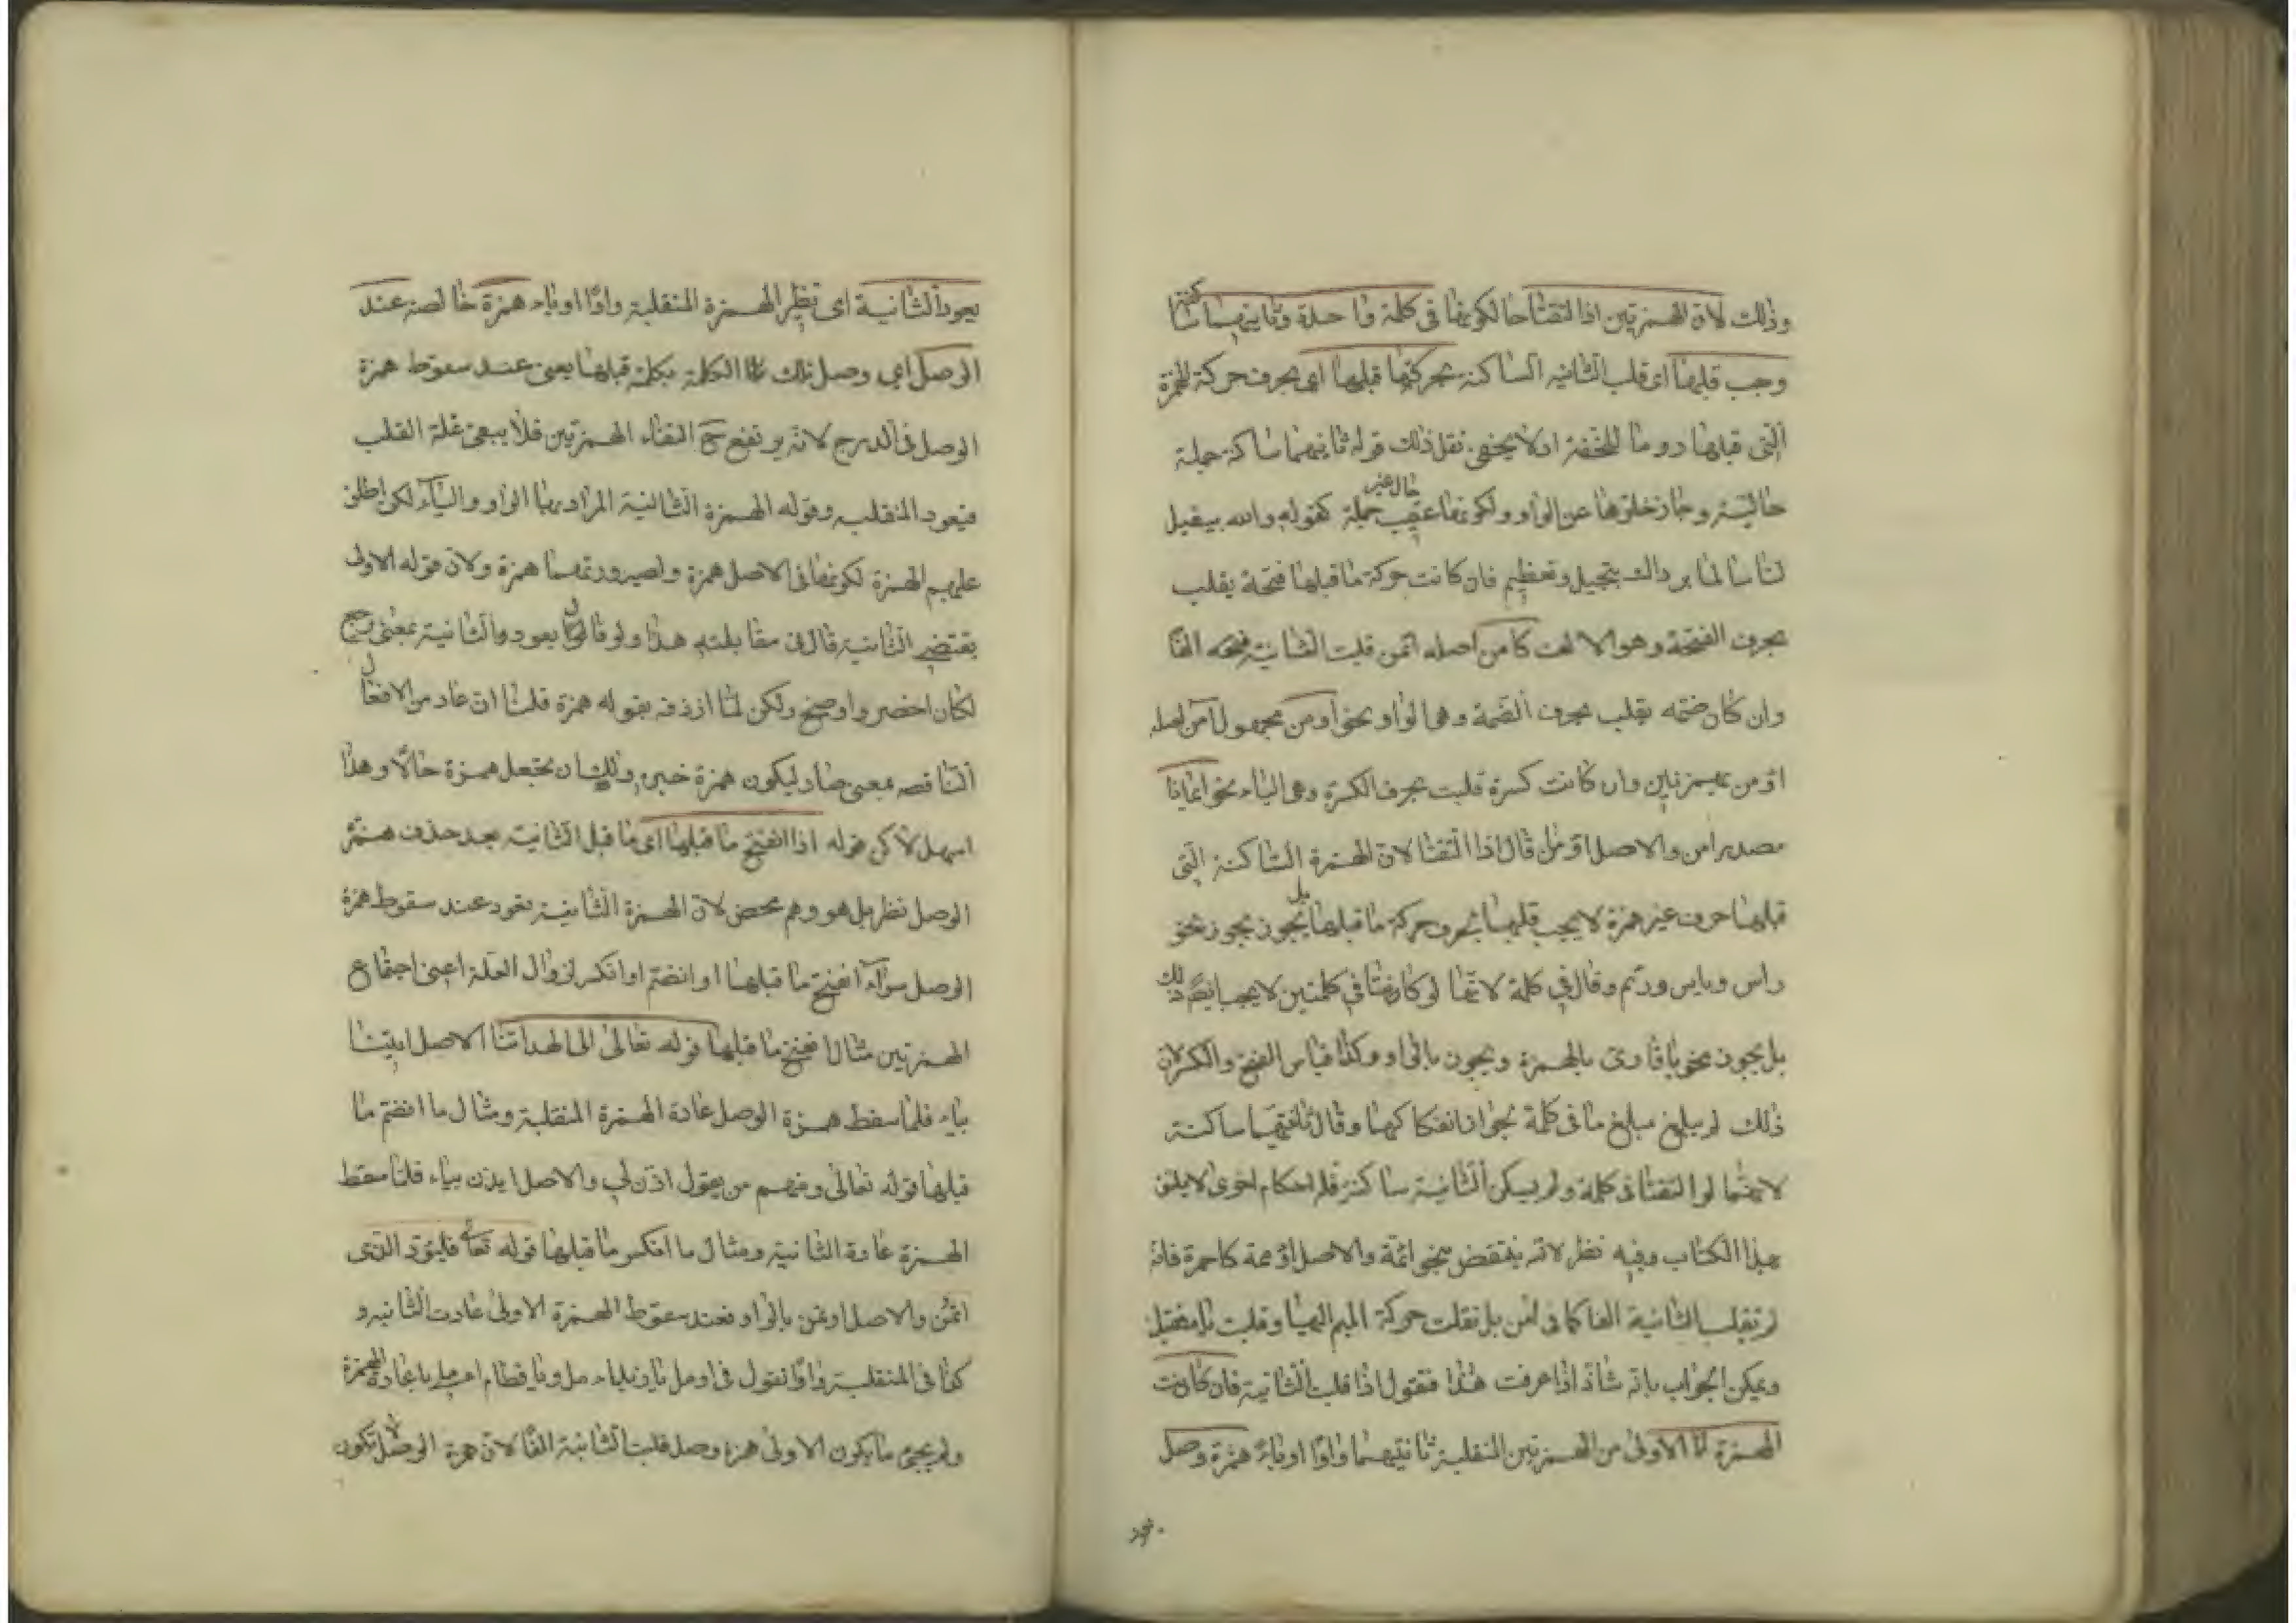 وذلك لان الهمزتين اذا التقتا حالكونهما فى كلمة واحدة وثانيهما ساكنة
وجب قلبها اى قلب الثانيه الساكنة بحركتها قبلها اى بحرف حركة الهمزة
التى قبلها روما للخفة اذ لا يخفى ثقل ذلك قوله ثانيهما ساكنة جملة
حالية وجاز خلوها عن الواو ولكونها عقيب حال غير جملة كقوله والله يبقيك
لنا سالما برداك بتجيل وتعظيم فان كانت حركة ما قبلها فتحة يقلب
بحرف الفتحة وهو الالف كامن اصله اَئمن قلبت الثانية الفا
وان كان ضمه يقلب بحرف الضمة وهى الواو نحو اومن مجهول آمن اصله
اؤمن بهمزتين وان كانت كسرة قلبت بحرف الكسرة وهى الياء نحو ايمانا
مصدر امن والاصل قال اذا التقتا لان الهمزة الساكنة التى
قبلها حرف غير همزة لا يجب قلبها بحرف حركة ما قبلها بل يجوز نحو
راس وباس ورئم وقال فى كلمة لانها لو كانتا فى كلمتين لا يجب ايضا ذلك
بل يجوز نحو يا قارى بالهمزة ويجوز بالواو وكذا قياس الفتح والكسر لان
ذلك لم يبلغ مبلغ ما فى كلمة لجواز انفكاكهما وقال ثانيهما ساكنة
لانهما لو التقتا فى كلمة ولم يسكن الثانية ساكنة فلم احكام اخرى لا يليق
بهذا الكتاب وفيه نظر لانه ينتقض بنحو ائمة والاصل اؤممة كاحمرة فانه
لم تقلب الثانية الفا كما فى امن بل نقلت حركة الميم اليها وقلبت ياء فقيل
ويمكن الجواب بانه شاذ اذا عرفت هذا فنقول اذا قلبت الثانية فان كانت
الهمزة الاولى من الهمزتين المنقلبة ثانيتهما واوا او ياء همزة وصل
يعود
يعود الثانية اى تظهر الهمزة المنقلبة واوًا او ياء همزة خالصة عند
الوصل اعى وصل تلك الكلمة بكلمة قبلها يعنى عند سقوط همزة
الوصل فى الدرج لانه يرتفع ح التقاء الهمزتين فلا يبقى علة القلب
فيعود المنقلبه وقوله الهمزة الثانية المراد بها الواو والياء لكن اطلق
عليهم الهمزة لكونها فى الاصل همزة ولصيرورتهما همزة ولان قوله الاولى
يقتضى الثانية قال فى مقابلته هذا ولو قال يعود والثانية بمعنى يرجع
لكان اخصر واوضح ولكن لما ازدفه بقوله همزة قلنا ان عاد من الافعال
الناقصه بمعنى صار ليكون همزة خبره ولك ان تجعل همزة حالا وهذا
اسهل لاكن قوله اذا انفتح ما قبلها اى ما قبل الثانية بعد حذف همزة
الوصل نظر بل هو وهم محض لان الهمزة الثانية يعود عند سقوط همزة
الوصل سواء انفتح ما قبلها او انضم او انكسر لزوال العلة اعنى اجتماع
الهمزتين مثال انفتح ما قبلها قوله تعالى الى الهدى ائتنا الاصل ايتنا
بياء فلما سقط همزة الوصل عادة الهمزة المنقلبة ومثال ما انضم ما
قبلها قوله تعالى ومنهم من يقول ائذن لى والاصل ايذن بياء فلما سقط
الهمزة عادة الثانية ومثال ما انكسر ما قبلها قوله تعالى فليؤد الذى
ائتمن والاصل اوتمن بالواو فعند سقوط الهمزة الاولى عادت الثانيه و
كذا فى المنقلبة واوا نقول فى اومل يا زيد باعادة الهمزة
ولم يجئ ما يكون الاولى همزة وصل قلبت الثانية الفا لان همزة الوصل لا تكون